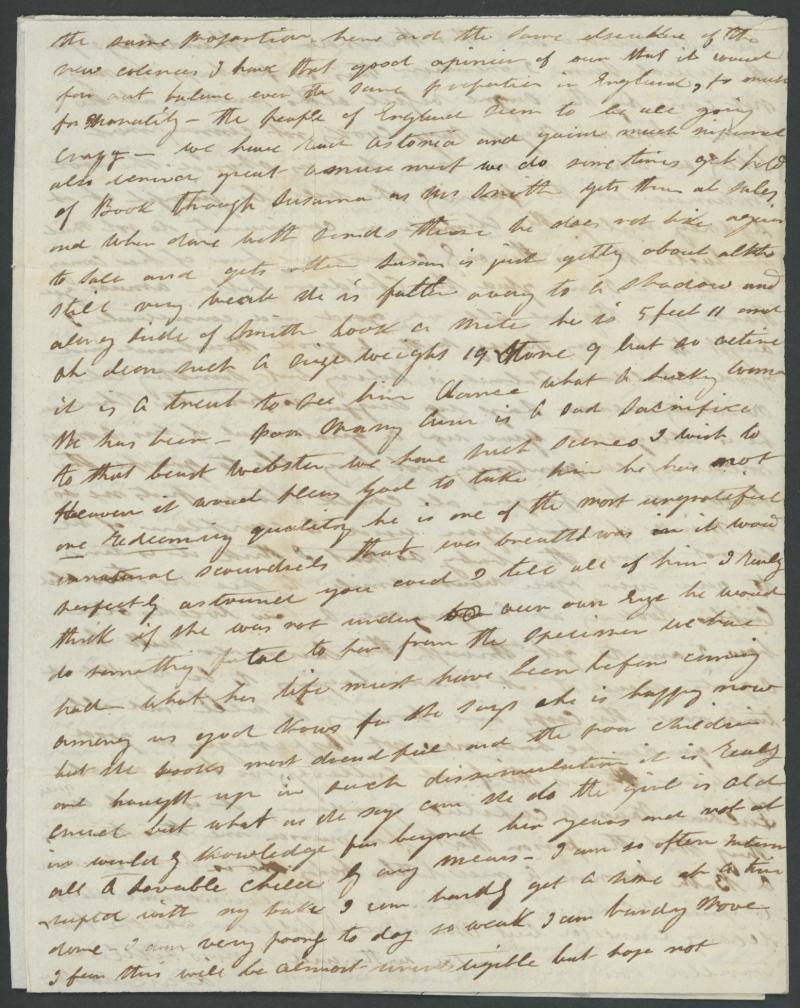 the same proportion here and the same elsewhere of the
new colences I have that good opinion of our that it would
far out balance even the same proportion in England, so much
for Morality - the people of England seem to be all going
crazy - we have Read astoria and gained much
also derived great amusement we do sometimes get hold
of Book through Susanna as Mr Smith gets them at sales
and when done with sends those he does not like again
to Sale and gets other Susan is just getting about altho
still very weak she is fallen away to a shadow and
along side of Smith look a Mite he is 5 feet 11 and
oh dear such a size weighs 19 Stone 9 but so active
it is a treat to see him dance what a lucky woman
she has been - poor Mary Ann is a sad sacrifice
to that beast Webster we have such scenes I wish to
Heaven it would pleas God to take him he has not
one Redeeming quality he is one of the most ungrateful
unnatural scoundrils that ever breathd was in it woud
perfectly astound you coud I tell all of him I Really
think if she was not under our own Eye he would
do something fatal to her from the specimen we have
had what her life must have been before coming
among us god knows for she says she is happy now
but she looks most dreadful and the poor children
are brought up in such dissimulation it is Really
cruel but what as she says can she do the girl is old
in worldly knowledge far beyond her years and not at
all A lovable child by any means - I am so often interr
rupted with my babe I can hardly get a line at a time
done - I am very poorly to day so weak I can hardly Move
I fear this will be almost uninteligible but hope not